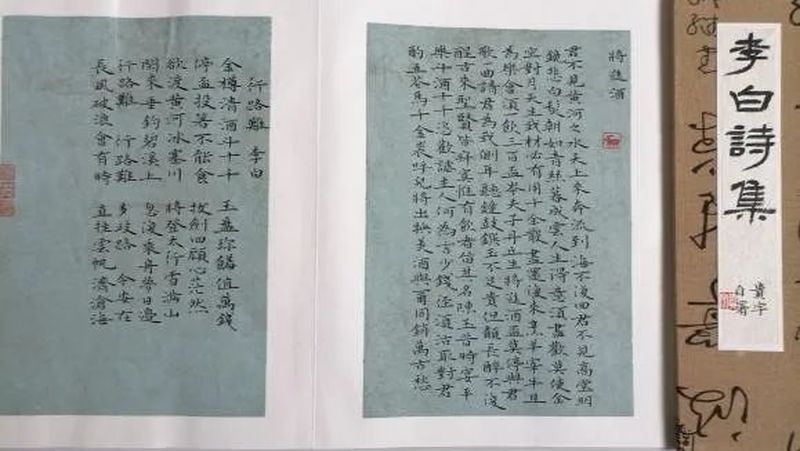 李白詩集
黄宇
自署
將進酒
君不見黄河之水天上來奔流到海不復回君不見高堂明
鏡悲白髮朝如青絲暮成雪人生得意須盡歡莫使金
空對月天生我材必有用千金散盡還復來烹羊宰牛且
為樂會須一飲三百盃岑夫子丹丘生將進酒盃莫停與君
歌一曲請君為我側耳聽鐘鼓饌玉不足貴但願長醉不復
醒古來聖賢皆寂寞惟有飲者留其名陳王昔時宴平
樂斗酒十千恣歡謔主人何為言少錢徑須沽取對君
酌五花馬千金裘呼兒將出換美酒與爾同銷萬古愁
行路難 李白
金樽清酒斗十千 玉盤珍饈值萬錢
停盃投箸不能食 拔劍四顧心茫然
欲渡黄河冰塞川 將登太行雪滿山
閑來垂釣碧溪上 忽復乘舟夢日邊
行路難 行路難 多歧路 今安在
長風破浪會有時 直挂雲帆濟滄海